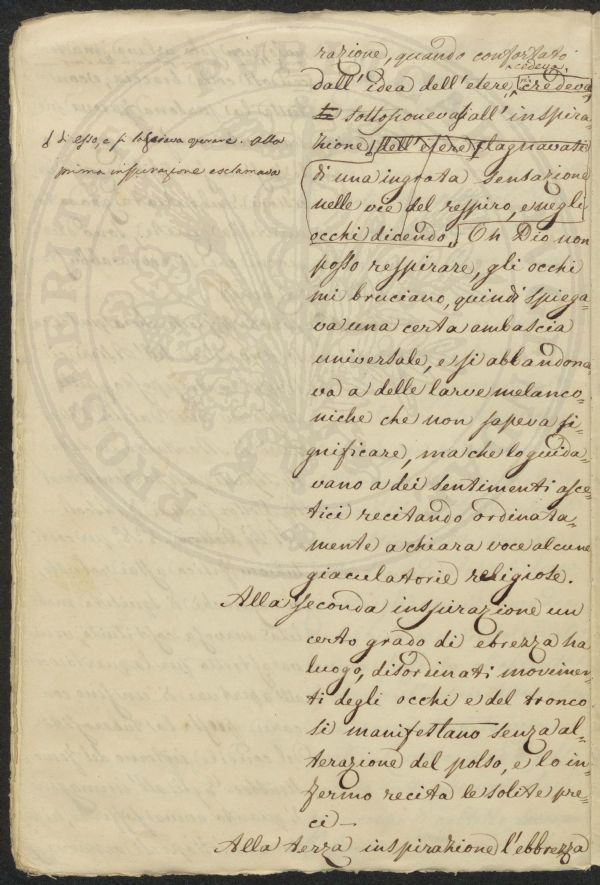 razione, quando confortato
cedeva,
dall'idea dell'etere, credeva
sottoponevasi all'inspira=
zione dell'etere lagnavasi
di esso, e si lasciava operare. Alla
prima inspirazione esclamava
di una ingrata sensazione
nelle vie del respiro, e negli
occhi dicendo,, Oh Dio non
posso respirare, gli occhi
mi bruciano, quindi spiega=
va una certa ambascia
universale, e si abbandona=
va a delle larve melanco=
niche che non sapeva si=
gnificare, ma che lo guida=
vano a dei sentimenti asce=
tici recitando ordinata=
mente a chiara voce alcune
giaculatorie religiose.
Alla seconda inspirazione un
certo grado di ebrezza ha
luogo, disordinati movimen=
ti degli occhi e del tronco
si manifestano senza al=
terazione del polso, e lo in=
fermo recita le solite pre=
ci —
Alla terza inspirazione l'ebbrezza